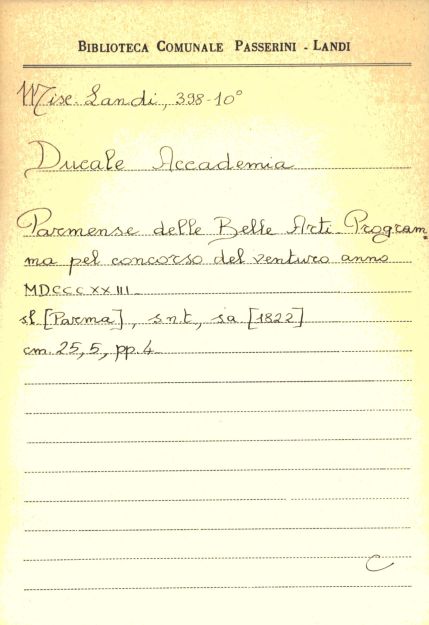 BIBLIOTECA COMUNALE PASSERINI - LANDI
Misc. Landi, 398-10°
Ducale Accademia
Parmense delle Belle Arti - Program
ma pel concorso del venturo anno
MDCCCXXIII_
sl [Parma], s.n.t., sa [1822]
cm. 25,5, pp. 4
C